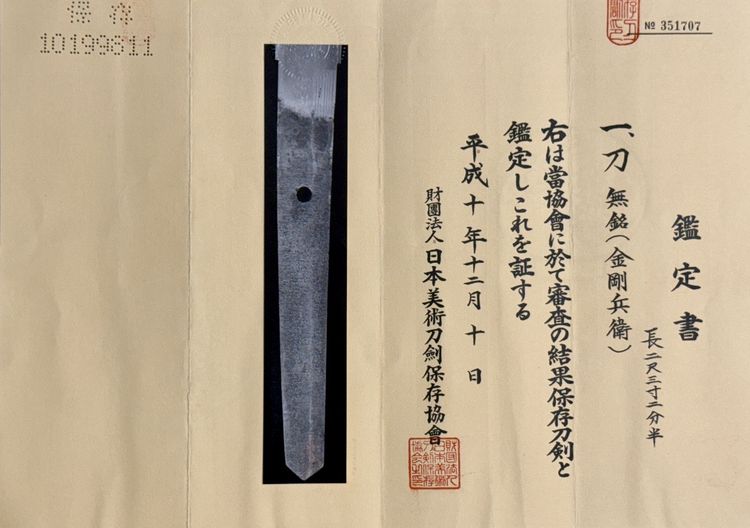 № 351707
鑑定書
一、刀 無銘(金剛兵衛)
長二尺三寸二分半
右は當協會に於て審査の結果保存刀剣と
鑑定しこれを証する
平成十年十二月十日
財團法人日本美術刀劍保存協會
保存
10199811